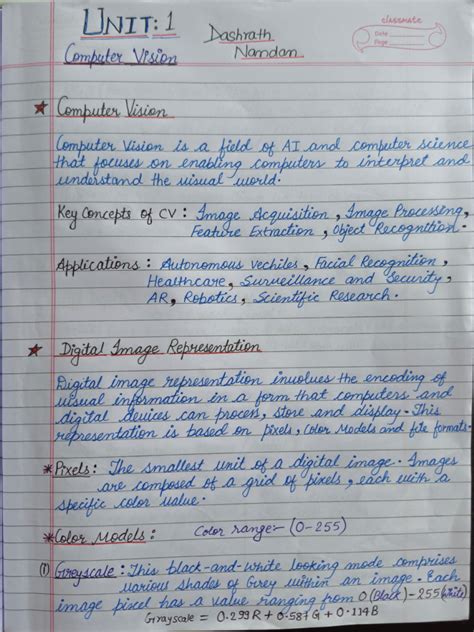 UNIT: 1
Dashrath
Nandan
classmate
Date
Page
Computer Vision
★ Computer Vision
Computer Vision is a field of AI and computer science
that focuses on enabling computers to interpret and
understand the visual world.
Key Concepts of CV: Image Acquisition, Image Processing,
Feature Extraction, Object Recognition.
Applications: Autonomous vechiles, Facial Recognition,
Healthcare, Surveillance and Security,
AR, Robotics, Scientific Research.
★ Digital Image Representation
Digital image representation involves the encoding of
visual information in a form that computers and
digital devices can process, store and display. This
representation is based on pixels, color models and file formats.
*Pixels: The smallest unit of a digital image. Images
are composed of a grid of pixels, each with a
specific color value.
*Color Models: Color range:- (0-255)
(1) Greyscale: This black-and-white looking mode comprises
various shades of Grey within an image. Each
image pixel has a value ranging from 0(Black)-255(white)
Grayscale = 0.299R + 0.587G + 0.114B